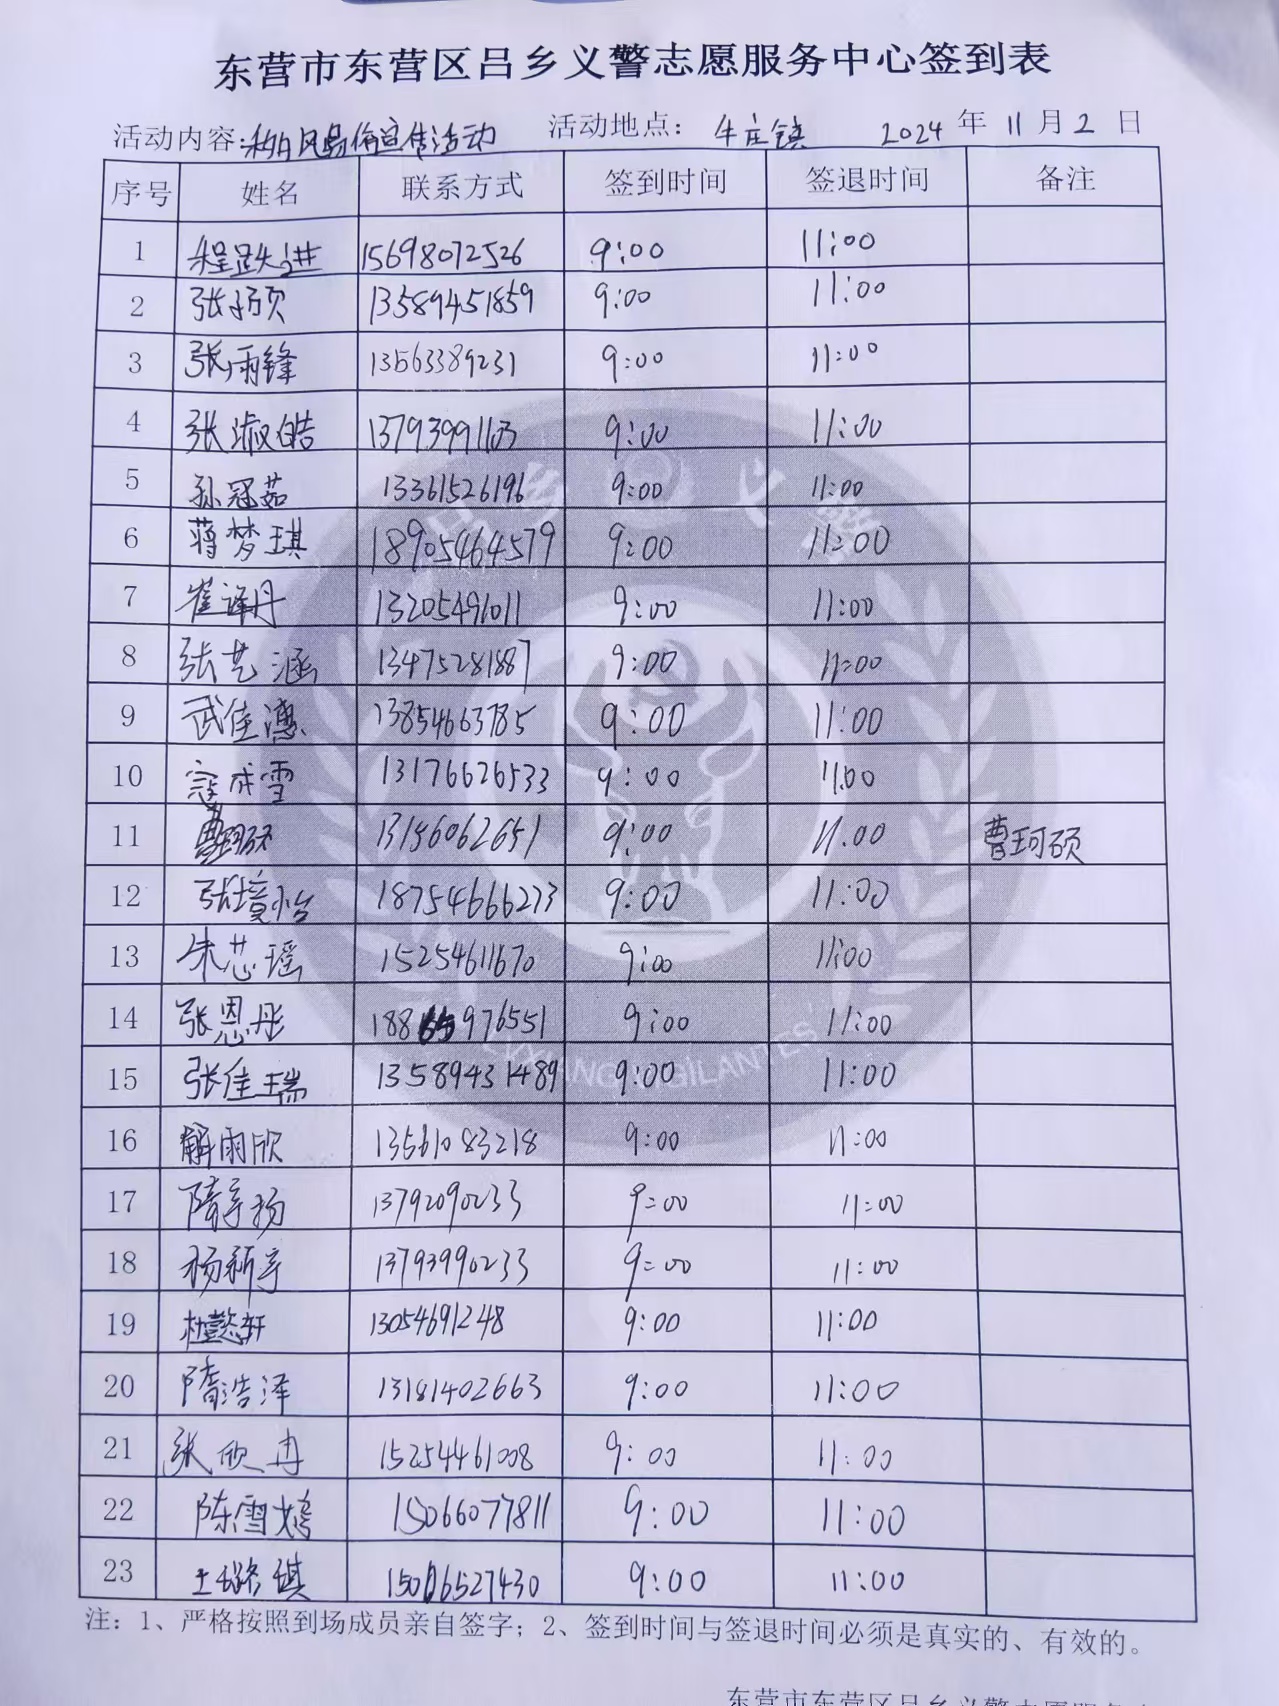 东营市东营区吕乡义警志愿服务中心签到表
活动内容: 宣传活动 活动地点: 牛庄镇 2024 年 11 月 2 日
序号 姓名 联系方式 签到时间 签退时间 备注
1 程跃进 15698072526 9:00 11:00
2 张子硕 13589451859 9:00 11:00
3 张雨锋 13563389231 9:00 11:00
4 张淑皓 13793991103 9:00 11:00
5 孙冠茹 13361526196 9:00 11:00
6 蒋梦琪 18905464579 9:00 11:00
7 崔译丹 13205491011 9:00 11:00
8 张艺涵 13475281887 9:00 11:00
9 武佳 13854663785 9:00 11:00
10 寇成雪 13176626533 9:00 11:00
11 曹珂硕 13156062651 9:00 11.00 曹珂硕
12 张境怡 18754666273 9:00 11:00
13 朱芯瑶 15254611670 9:00 11:00
14 张恩彤 18865976551 9:00 11:00
15 张佳瑞 13589431489 9:00 11:00
16 解雨欣 13561083218 9:00 11:00
17 隋宇扬 13792090233 9:00 11:00
18 杨新宇 13793990233 9:00 11:00
19 杜懿轩 13054691248 9:00 11:00
20 隋浩泽 13181402663 9:00 11:00
21 张欣冉 15254461008 9:00 11:00
22 陈雪嫣 15066077811 9:00 11:00
23 王璐琪 15006527430 9:00 11:00
注：1、严格按照到场成员亲自签字；2、签到时间与签退时间必须是真实的、有效的。
东营市东营区吕乡义警志愿服务